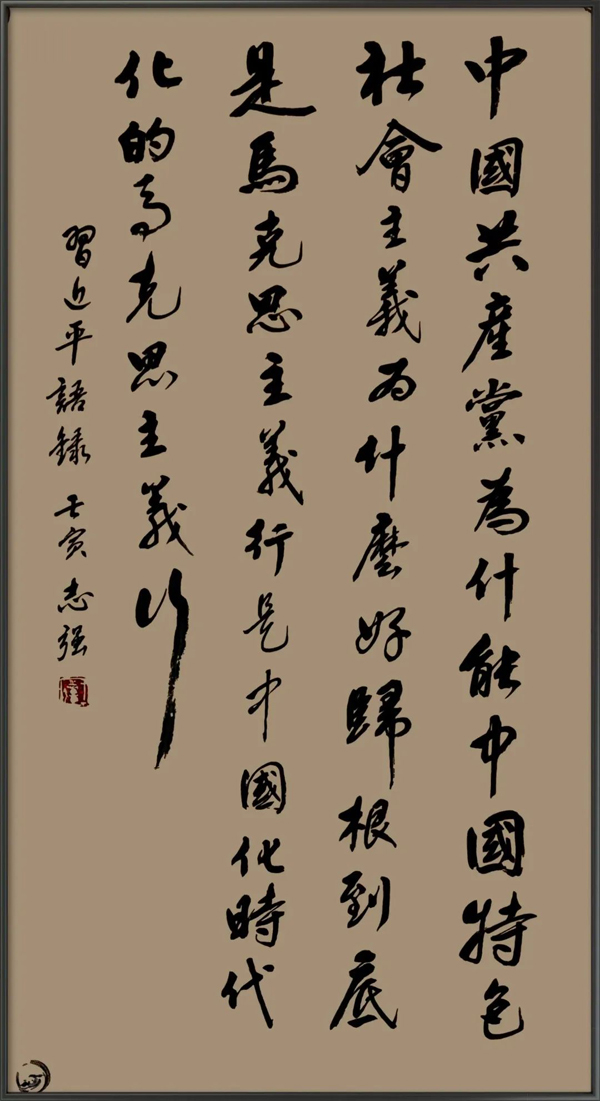 中國共產黨為什能中國特色
社會主義为什麼好歸根到底
是馬克思主義行是中國化時代
化的马克思主義行
習近平語錄 壬寅 志强